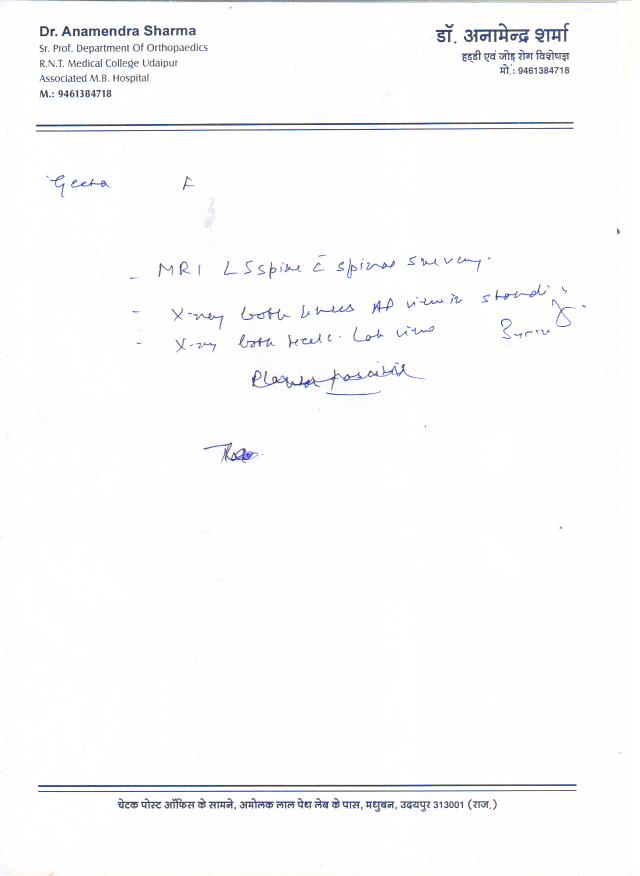 Dr. Anamendra Sharma
Sr. Prof. Department Of Orthopaedics
R.N.T. Medical College Udaipur
Associated M.B. Hospital
M.: 9461384718
डॉ. अनामेन्द्र शर्मा
हड्डी एवं जोड़ रोग विशेषज्ञ
मो.: 9461384718
Geeta F
- MRI LSspine c̄ spinal survey.
- X-ray both knees AP view in
- X-ray both heels. Lat view
Plantar fasciitis
चेटक पोस्ट ऑफिस के सामने, अमोलक लाल पेथ लेब के पास, मधुबन, उदयपुर 313001 (राज.)